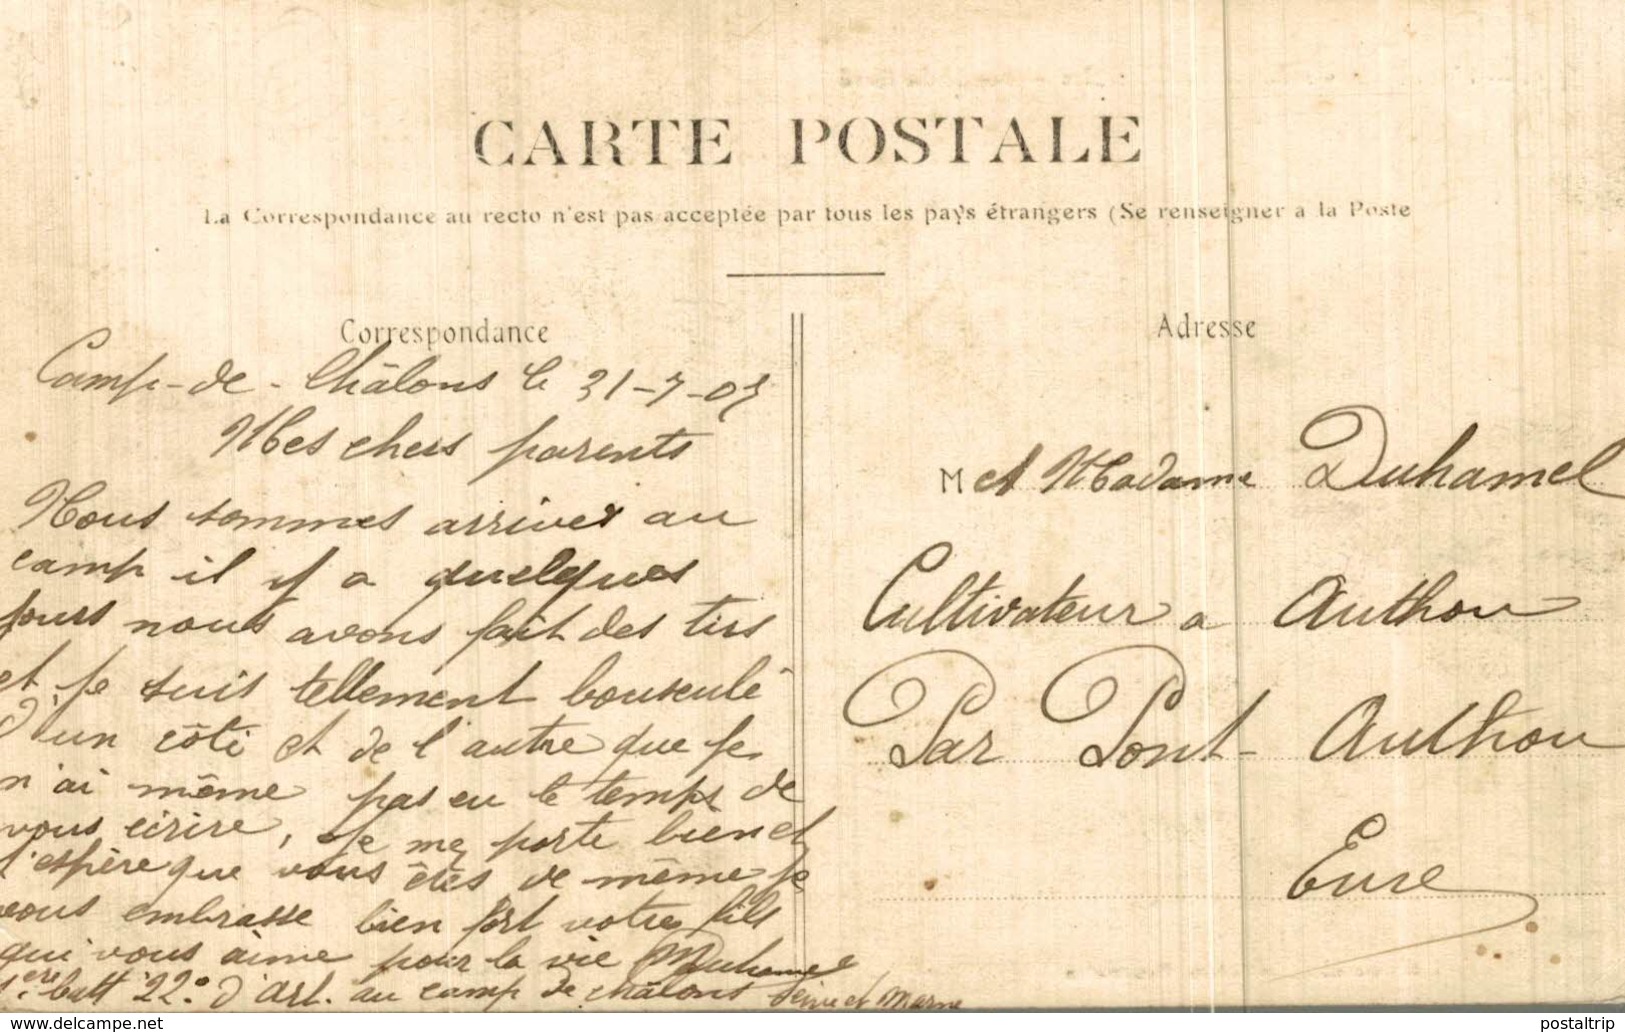 CARTE POSTALE
La Correspondance au recto n'est pas acceptée par tous les pays étrangers (Se renseigner a la Poste
Correspondance
Camp-de-Châlons le 31-7-07
Mes chers parents
Nous sommes arrives au
camp il y a quelques
jours nous avons fait des tirs
et je suis tellement bousculé
d'un côté et de l'autre que je
n'ai même pas eu le temps de
vous ecrire, je me porte bien et
j'espère que vous êtes de même je
vous embrasse bien fort votre fils
qui vous aime pour la vie Duhamel
1ere batt 22e d'Art. au camp de châlons Seine et Marne
Adresse
M et Madame Duhamel
Cultivateur a Authou
Par Pont-Authou
Eure
www.delcampe.net
postaltrip